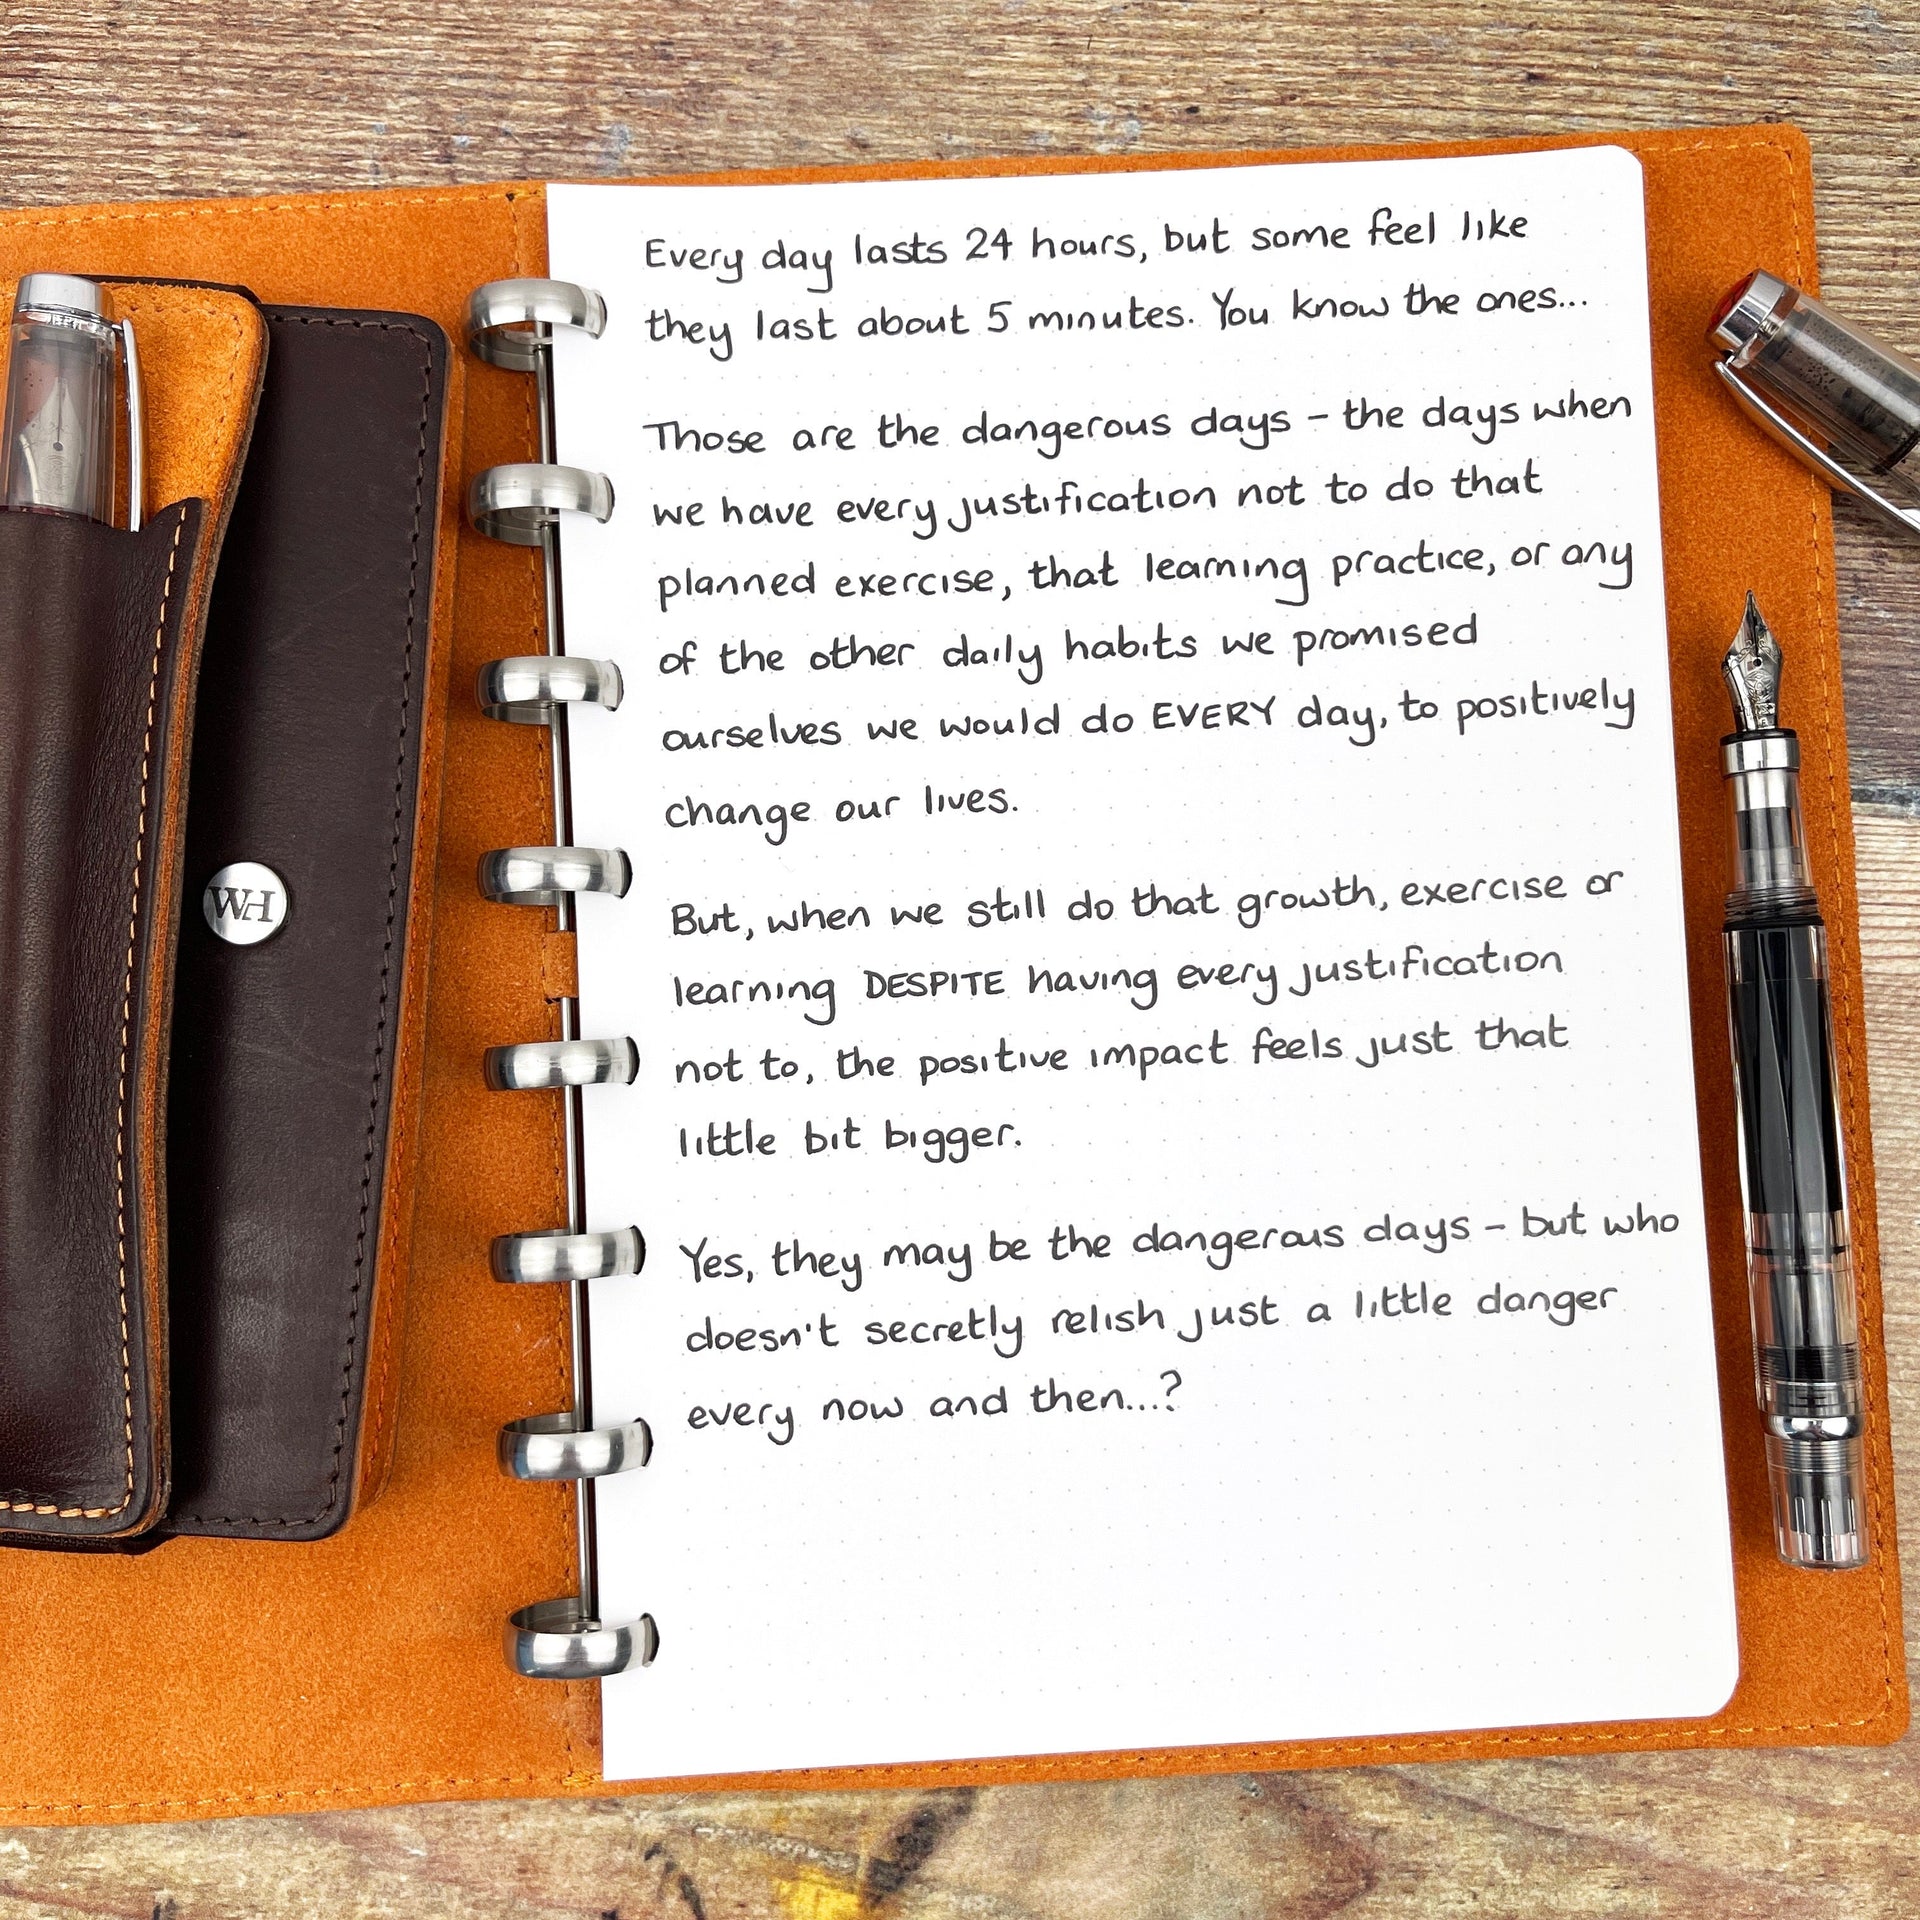 Every day lasts 24 hours, but some feel like
they last about 5 minutes. You know the ones...
Those are the dangerous days – the days when
we have every justification not to do that
planned exercise, that learning practice, or any
of the other daily habits we promised
ourselves we would do EVERY day, to positively
change our lives.
But, when we still do that growth, exercise or
learning DESPITE having every justification
not to, the positive impact feels just that
little bit bigger.
Yes, they may be the dangerous days – but who
doesn't secretly relish just a little danger
every now and then...?
WH